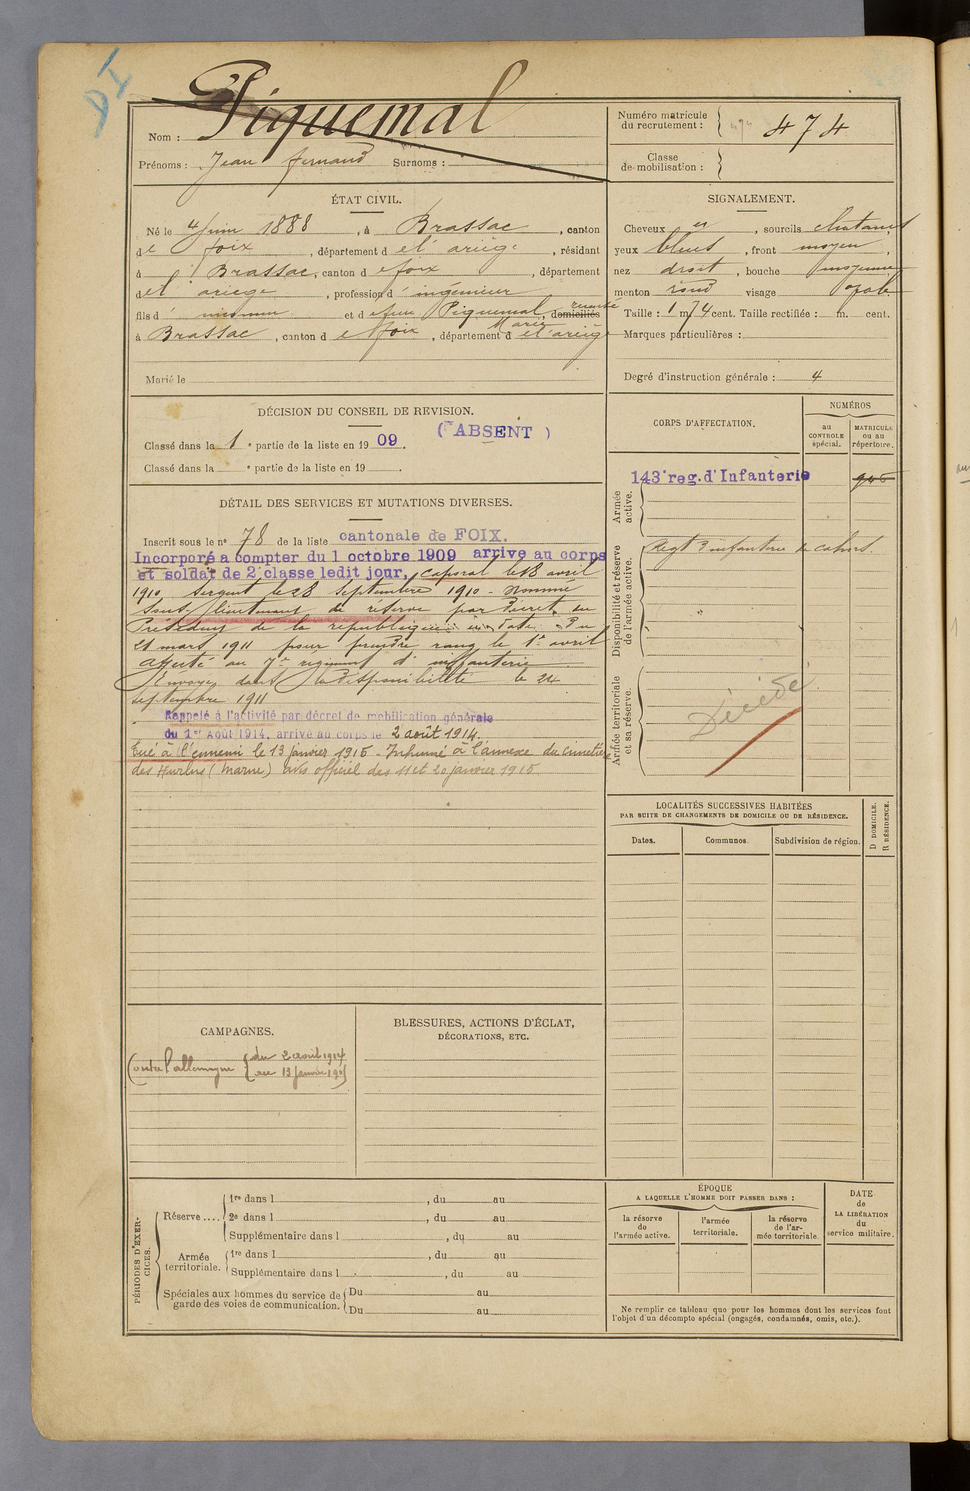 Nom : Piquemal
Prénoms : Jean Fernand Surnoms :
Numéro matricule du recrutement : 474
Classe de mobilisation :
ÉTAT CIVIL.
Né le 4 Juin 1888, à Brassac, canton
de Foix, département de l'ariège, résidant
à Brassac, canton de foix, département
de l'ariège, profession d'ingénieur
fils d' et de feue Piquemal Marie, domiciliés
à Brassac, canton de foix, département de l'ariège
Marié le
SIGNALEMENT.
Cheveux et, sourcils chatains,
yeux bleus, front moyen,
nez droit, bouche moyenne
menton rond visage ovale
Taille : 1 m 74 cent. Taille rectifiée : m. cent.
Marques particulières :
Degré d'instruction générale : 4
DÉCISION DU CONSEIL DE REVISION.
(ABSENT)
Classé dans la 1 e partie de la liste en 1909.
Classé dans la e partie de la liste en 19 .
CORPS D'AFFECTATION.
NUMÉROS
au CONTROLE spécial.
MATRICULE ou au répertoire.
Armée active.
143e reg. d'Infanterie
Disponibilité et réserve de l'armée active.
Regt d'infanterie de cahors.
Armée territoriale et sa réserve.
Décédé
DÉTAIL DES SERVICES ET MUTATIONS DIVERSES.
Inscrit sous le n° 78 de la liste cantonale de FOIX.
Incorporé a compter du 1 octobre 1909 arrive au corps
et soldat de 2 classe ledit jour, caporal le 18 avril
1910, sergent le 28 Septembre 1910 - nommé
sous-lieutenant de réserve par Décret du
Président de la république en date du
21 mars 1911 pour prendre rang le 1er avril
Affecté au 7e régiment d'infanterie
Envoyé dans la disponibilité le 24
septembre 1911
Rappelé à l'activité par décret de mobilisation générale
du 1er Août 1914, arrivé au corps le 2 août 1914.
Tué à l'ennemi le 13 janvier 1915 - Inhumé à l'annexe du cimetière
des Hurlus (Marne) avis officiel des 11 et 20 janvier 1915.
LOCALITÉS SUCCESSIVES HABITÉES
PAR SUITE DE CHANGEMENTS DE DOMICILE OU DE RÉSIDENCE.
Dates.
Communes.
Subdivision de région.
D DOMICILE.
R RÉSIDENCE.
CAMPAGNES.
Contre l'allemagne du 2 août 1914
au 13 janvier 1915
BLESSURES, ACTIONS D'ÉCLAT,
DÉCORATIONS, ETC.
PÉRIODES D'EXERCICES.
Réserve....
1re dans l , du au
2e dans l , du au
Supplémentaire dans l , du au
Armée territoriale.
1re dans l , du au
Supplémentaire dans l , du au
Spéciales aux hommes du service de garde des voies de communication.
Du au
Du au
ÉPOQUE
A LAQUELLE L'HOMME DOIT PASSER DANS :
la réserve de l'armée active.
l'armée territoriale.
la réserve de l'armée territoriale.
DATE de LA LIBÉRATION du service militaire.
Ne remplir ce tableau que pour les hommes dont les services font
l'objet d'un décompte spécial (engagés, condamnés, omis, etc.).